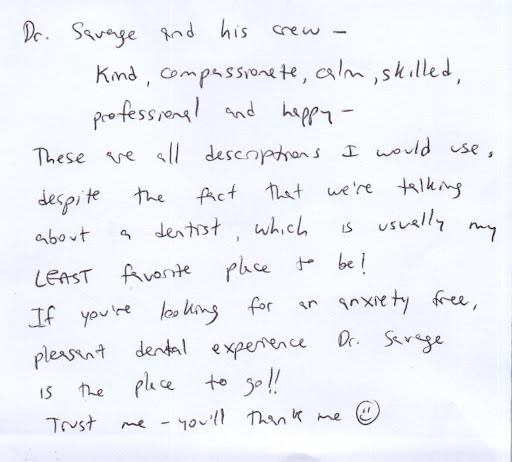 Dr. Savage and his crew –
Kind, compassionate, calm, skilled,
professional and happy –
These are all descriptions I would use,
despite the fact that we're talking
about a dentist, which is usually my
LEAST favorite place to be!
If you're looking for an anxiety free,
pleasant dental experience Dr. Savage
is the place to go!!
Trust me – you'll thank me ☺